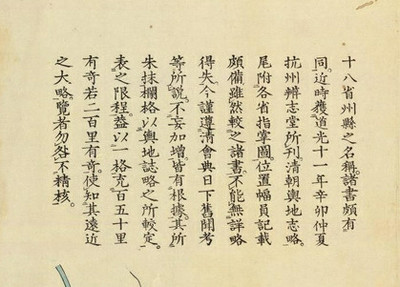 十八省州縣之名稱。諸書頗有
同。近時獲道光十一年辛卯仲夏
杭州辨志堂所刊清朝輿地志略。
尾附各省指掌圖。位置幅員記載
頗備雖然較之諸書不能無詳略
得失今謹遵清會典日下舊聞考
等所說。不妄加增。皆有根據。其所
朱抹欄格以輿地誌略之所較定。
表之限程。蓋以一格充百五十里
有奇若二百里有奇。使知其遠近
之大略。覽者勿咎不精核。